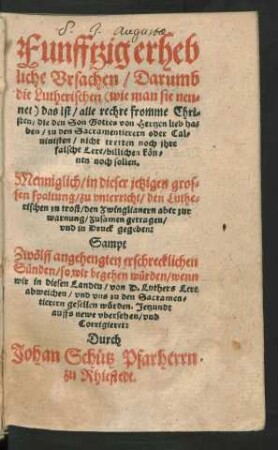 S. J. Augusta
Funfftzig erheb
liche Vrsachen / Darumb
die Lutherischen (wie man sie nen-
net) das ist / alle rechte fromme Chri-
sten / die den Son Gottes von Hertzen lieb ha-
ben / zu den Sacramentierern oder Cal-
uinisten / nicht tretten noch ihre
falsche Lere / billichen kön-
nen noch sollen.
Menniglich / in dieser jetzigen gros-
sen spaltung / zu vnterricht / den Luthe-
rischen zu trost / den Zwinglianern aber zur
warnung / zusamen getragen /
vnd in Druck gegeben:
Sampt
Zwölff angehengten erschrecklichen
Sünden / so wir begehen würden / wenn
wir in diesen Landen / von D. Luthers Lere
abweichen / vnd vns zu den Sacramen-
tierern gesellen würden. Jetzundt
auffs newe vbersehen / vnd
Corrigieret:
Durch
Johan Schütz Pfarherrn
zu Rhiestedt.